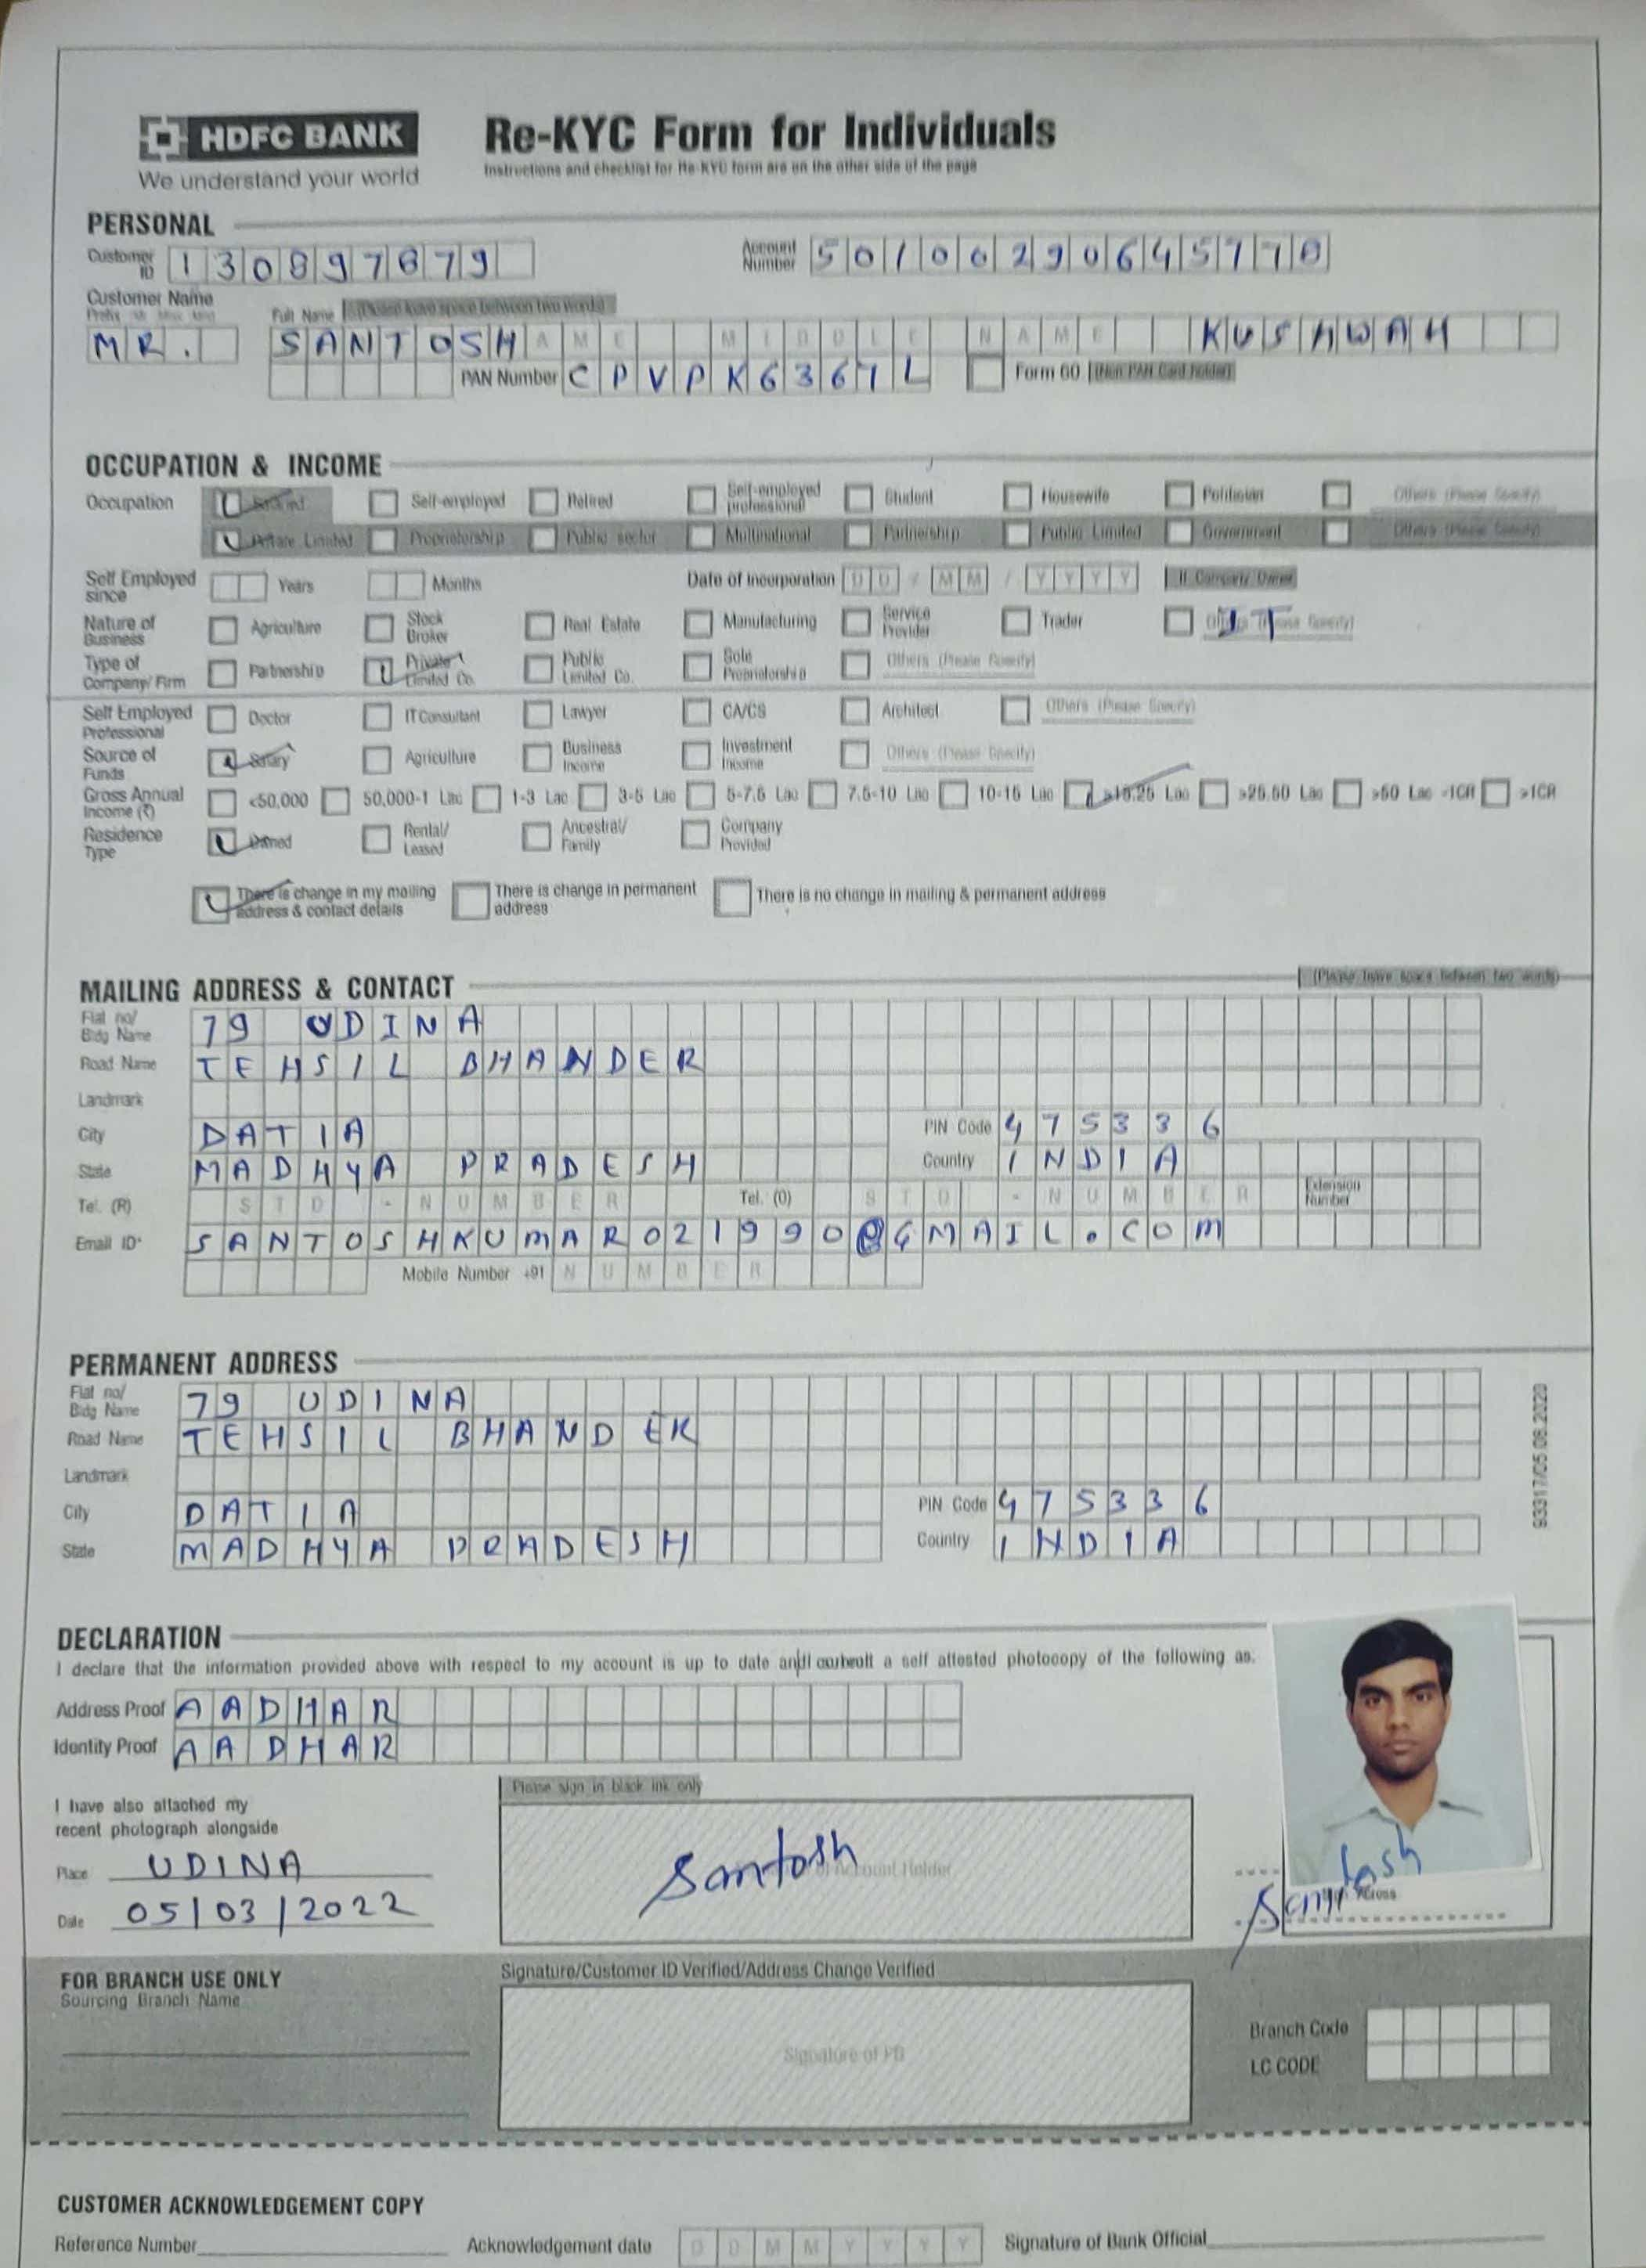 HDFC BANK
We understand your world
Re-KYC Form for Individuals
Instructions and checklist for Re-KYC form are on the other side of the page
PERSONAL
Customer ID 130897879 Account Number 50100290645778
Customer Name
Full Name (Please leave space between two words)
MR. SANTOSH AME MIDDLE NAME KUSHWAH
PAN Number CPVPK6367L Form 60 (Non PAN Card holder)
OCCUPATION & INCOME
Occupation Salaried Self-employed Retired Self-employed professional Student Housewife Politician Others (Please Specify)
Private Limited Proprietorship Public sector Multinational Partnership Public Limited Government Others (Please Specify)
Self Employed since Years Months Date of Incorporation DD / MM / YYYY If Company Owner
Nature of Business Agriculture Stock Broker Real Estate Manufacturing Service Provider Trader Others (Please Specify) IT
Type of Company/ Firm Partnership Private Limited Co. Public Limited Co. Sole Proprietorship Others (Please Specify)
Self Employed Professional Doctor IT Consultant Lawyer CA/CS Architect Others (Please Specify)
Source of Funds Salary Agriculture Business Income Investment Income Others (Please Specify)
Gross Annual Income (₹) <50,000 50,000-1 Lac 1-3 Lac 3-5 Lac 5-7.5 Lac 7.5-10 Lac 10-15 Lac >15.25 Lac >25.50 Lac >50 Lac -1CR >1CR
Residence Type Owned Rental/ Leased Ancestral/ Family Company Provided
There is change in my mailing address & contact details There is change in permanent address There is no change in mailing & permanent address
MAILING ADDRESS & CONTACT (Please leave space between two words)
Flat no/ Bldg Name 79 UDINA
Road Name TEHSIL BHANDER
Landmark
City DATIA PIN Code 475336
State MADHYA PRADESH Country INDIA
Tel. (R) STD - NUMBER Tel. (O) STD - NUMBER Extension Number
Email ID* SANTOSHKUMAR021990@GMAIL.COM
Mobile Number +91 NUMBER
PERMANENT ADDRESS
Flat no/ Bldg Name 79 UDINA
Road Name TEHSIL BHANDER
Landmark
City DATIA PIN Code 475336
State MADHYA PRADESH Country INDIA
93317/05.08.2020
DECLARATION
I declare that the information provided above with respect to my account is up to date and a self attested photocopy of the following as:
Address Proof AADHAR
Identity Proof AADHAR
I have also attached my
recent photograph alongside
Place UDINA
Date 05/03/2022
Please sign in black ink only
Santosh
Account Holder
Santosh
Across
FOR BRANCH USE ONLY
Sourcing Branch Name
Signature/Customer ID Verified/Address Change Verified
Signature of PB
Branch Code
LC CODE
CUSTOMER ACKNOWLEDGEMENT COPY
Reference Number Acknowledgement date DDMMYYYY Signature of Bank Official